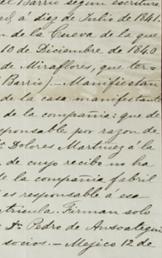 el Barrio segun escritura
ca, á diez de Julio de 1841
n de la Cueva de la que
10 de Diciembre de 1840
de Miraflores, que ter=
Barrio). Manifiestan
de la casa manifestante
la compañia: que de
ponsable, por razon de
Dolores Martinez á la
de cuyo recibo no ha
te la compañia fabril
es responsable á esa
tricula. Firman solo
Dn. Pedro de Ansoategui
socios.— Mejico 12 de